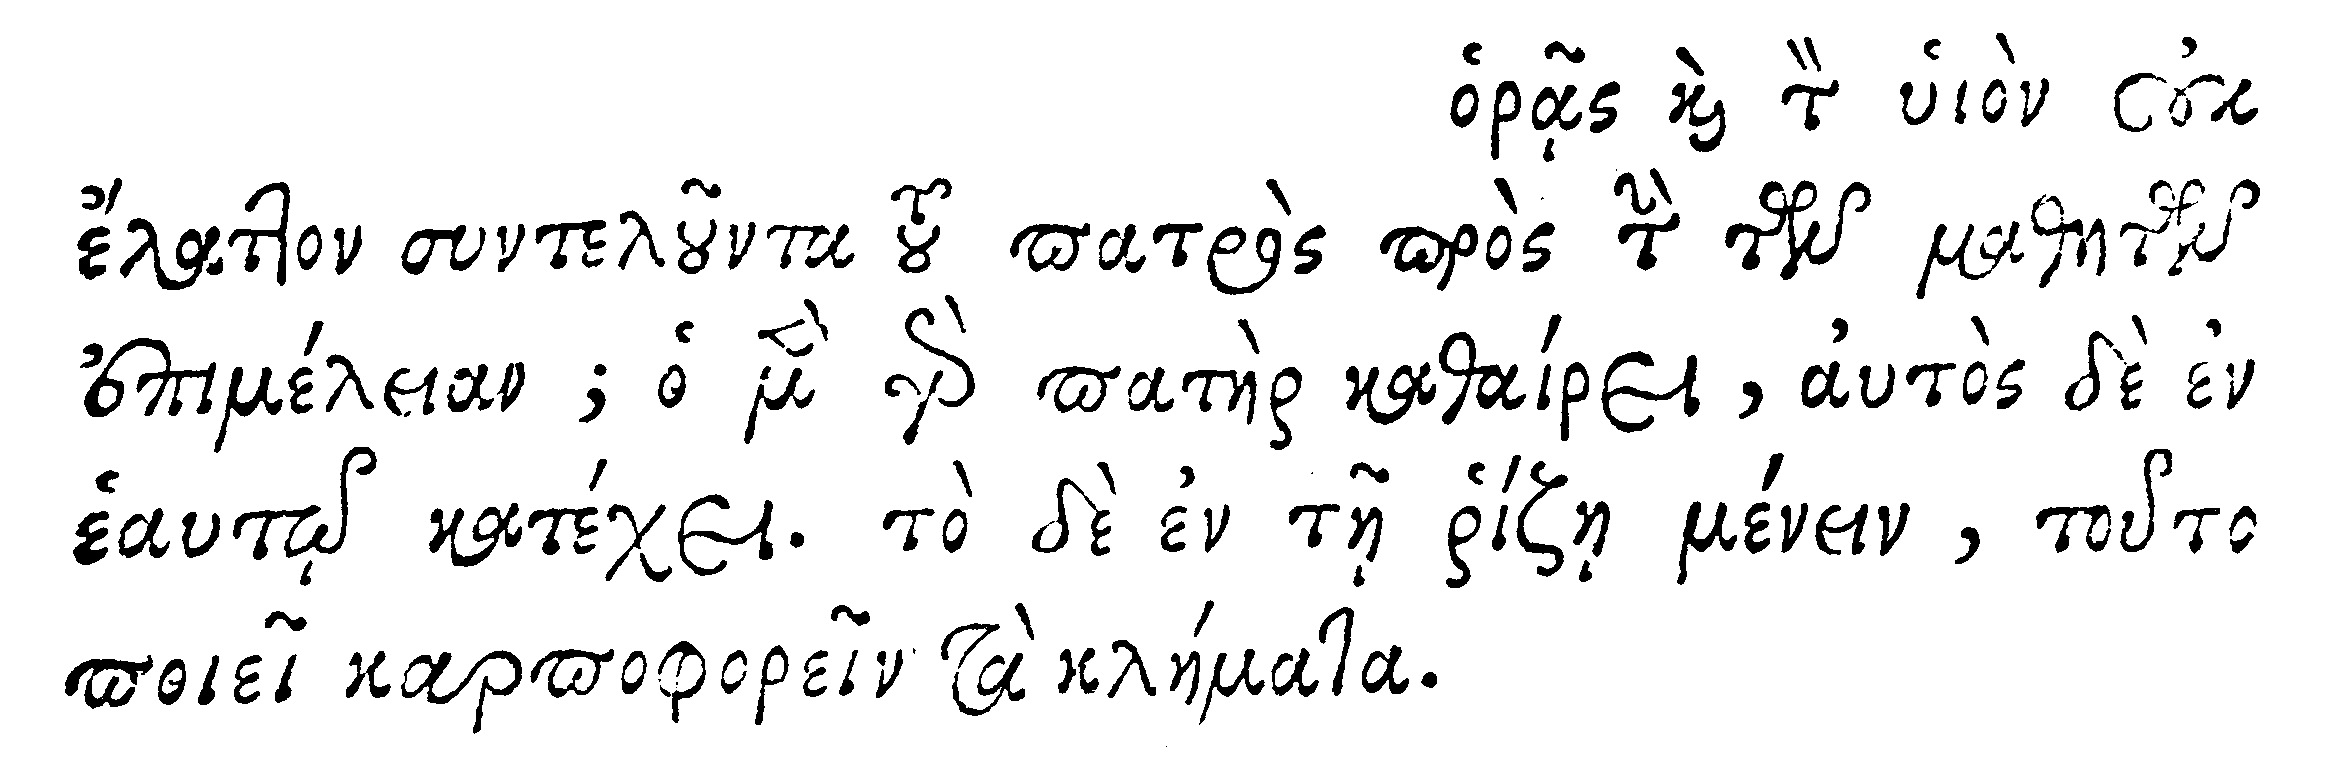 ὁρᾷς καὶ τὸν υἱὸν οὐκ
ἔλαττον συντελοῦντα τοῦ πατρὸς πρὸς τὴν τῶν μαθητῶν
ἐπιμέλειαν; ὁ μὲν γὰρ πατὴρ καθαίρει, αὐτὸς δὲ ἐν
ἑαυτῷ κατέχει. τὸ δὲ ἐν τῇ ῥίζῃ μένειν, τοῦτο
ποιεῖ καρποφορεῖν τὰ κλήματα.